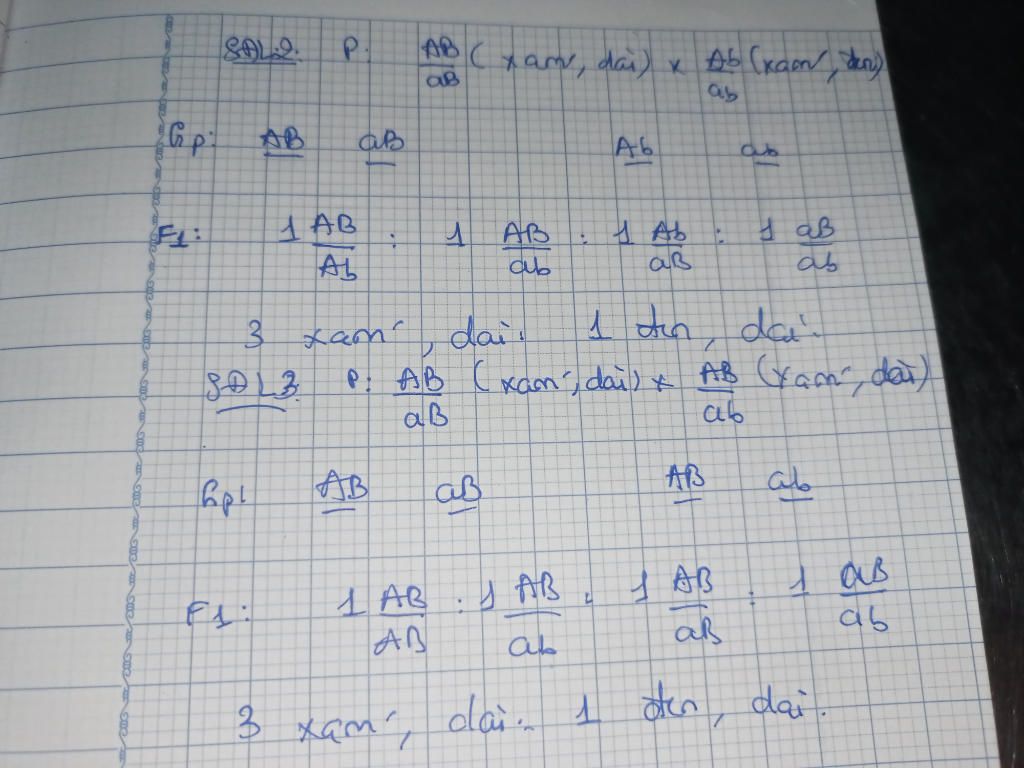 SĐL2. P: AB/aB (xám, dài) x Ab/ab (xám,
Gp: AB aB Ab ab
F1: 1 AB/Ab : 1 AB/ab : 1 Ab/aB : 1 aB/ab
3 xám, dài. 1 đen, dài.
SĐL3. P: AB/aB (xám, dài) x AB/ab (xám, dài)
Gp: AB aB AB ab
F1: 1 AB/AB : 1 AB/ab : 1 AB/aB : 1 aB/ab
3 xám, dài. 1 đen, dài.